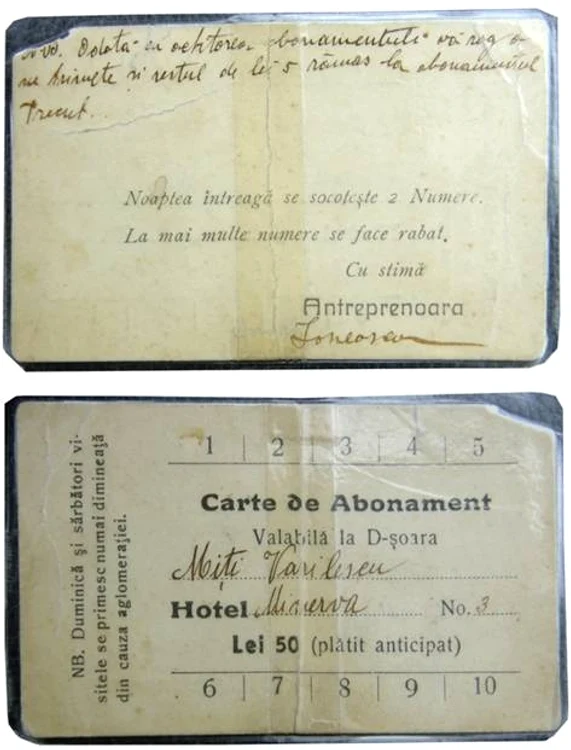 Odată cu achitarea abonamentului vă rog a
ne trimite și restul de lei 5 rămas la abonamentul
Trecut.
Noaptea întreagă se socotește 2 Numere.
La mai multe numere se face rabat.
Cu stimă
Antreprenoara
Ionescu
1 2 3 4 5
Carte de Abonament
Valabilă la D-șoara
Miți Vasilescu
Hotel Minerva No. 3
Lei 50 (plătit anticipat)
6 7 8 9 10
NB. Duminică și sărbători vi-
sitele se primesc numai dimineață
din cauza aglomerației.